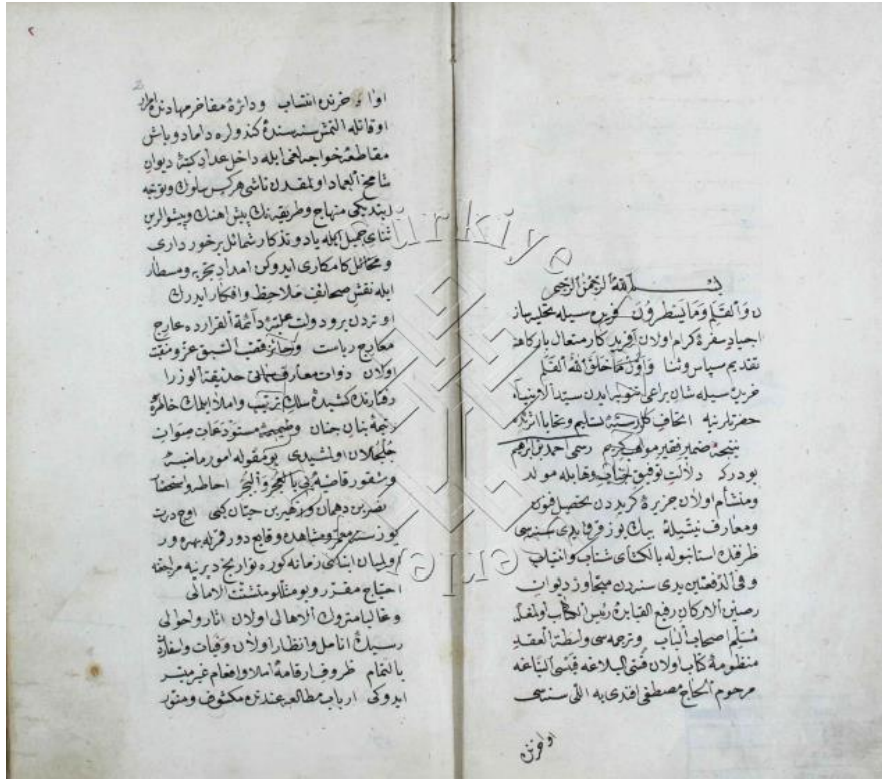 بسم الله الرحمن الرحيم
ن والقلم وما يسطرون فريده سيله تحليه ساز
اجياد سفرهٔ كرام اولان آفريدكار متعال باركاهنه
تقديم سپاس وثنا واول ما خلق الله القلم
خريده سيله شان يراعى تنويه ايدن سيد الانبيا
حضرتلرينه اتحاف كلدستهٔ تسليم وتحايا اثرنده
نتيجهٔ ضمير فقير مواهب كريم رسمى احمد بن ابراهيم
بودركه دلالت توفيق ايله مولد
ومنشأم اولان جزيرهٔ كريددن تحصيل فنون
ومعارف نيتيله بيك يوز قرق يدى سنه سى
طرفنده استانبوله بالكتاى شتاب وانتياب
وفى الدفعتين يدى سنه دن متجاوز ديوان
رصين الاركان رفيع القبابده رئيس الكتاب اولمغله
مسلم اصحاب الباب وترجمه سى واسطة العقد
منظومهٔ كتاب اولان قسّ البلاغه
مرحوم الحاج مصطفى افندى يه اللى سنه سى
اواخرنده
اواخرنده انتساب ودائرهٔ مفاخر مهادنده امرار
اوقاتله التمش سنه سنده كندولره داماد وباش
مقاطعه خواجه لغى ايله داخل عداد كتبهٔ ديوان
شامخ العماد اولمقدن ناشى هركس سلوك وتوجه
ايتديكى منهاج وطريقه نك پيش آهنك وپيشوالرين
ثناى جميل ايله ياد وتذكار شمائل برخوردارى
ومخائل كامكارى ايدوكن امداد تجربه ومسطار
ايله نقش صحائف ملاحظه وافكار ايدرك
اوته دن برو دولت عليهٔ دائمة القرارده عارج
معارج رياست وحائز قصب السبق عز ونفت
اولان ذوات معارف حديقة الوزرا
رفتارنده كشيدهٔ سلك ترتيب واملا ايلمك خاطره
رتيمهٔ بنان جنان وضميمهٔ مستودعات صوان
جلجلان اولمشيدى بو مقوله امور ماضيه
وشقور قاضيه بى بالعجر والبجر احاطه واستحصا
نصر بن دهمان و زهير بن جناب كبى اوچ درت
يوز سنه معمر ومشاهدهٔ وقايع دور قمرله بهره ور
اولميان ابناى زمانه كوره تواريخ ديرينه مراجعه
احتياج مقرر وبو مثللو متشتت الامانى
وغالبا متروك الاهالى اولان آثار واحوالى
رسيدهٔ انامل وانظار اولان وفيات واسفارده
بالتمام ظروف ارقامه املا وافعام غير ميسر
ايدوكى ارباب مطالعه عندنده مكشوف ومنور
Türkiye